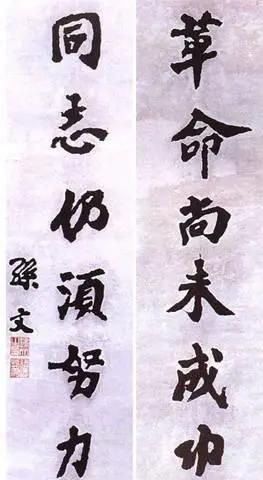 革命尚未成功
同志仍須努力
孫文